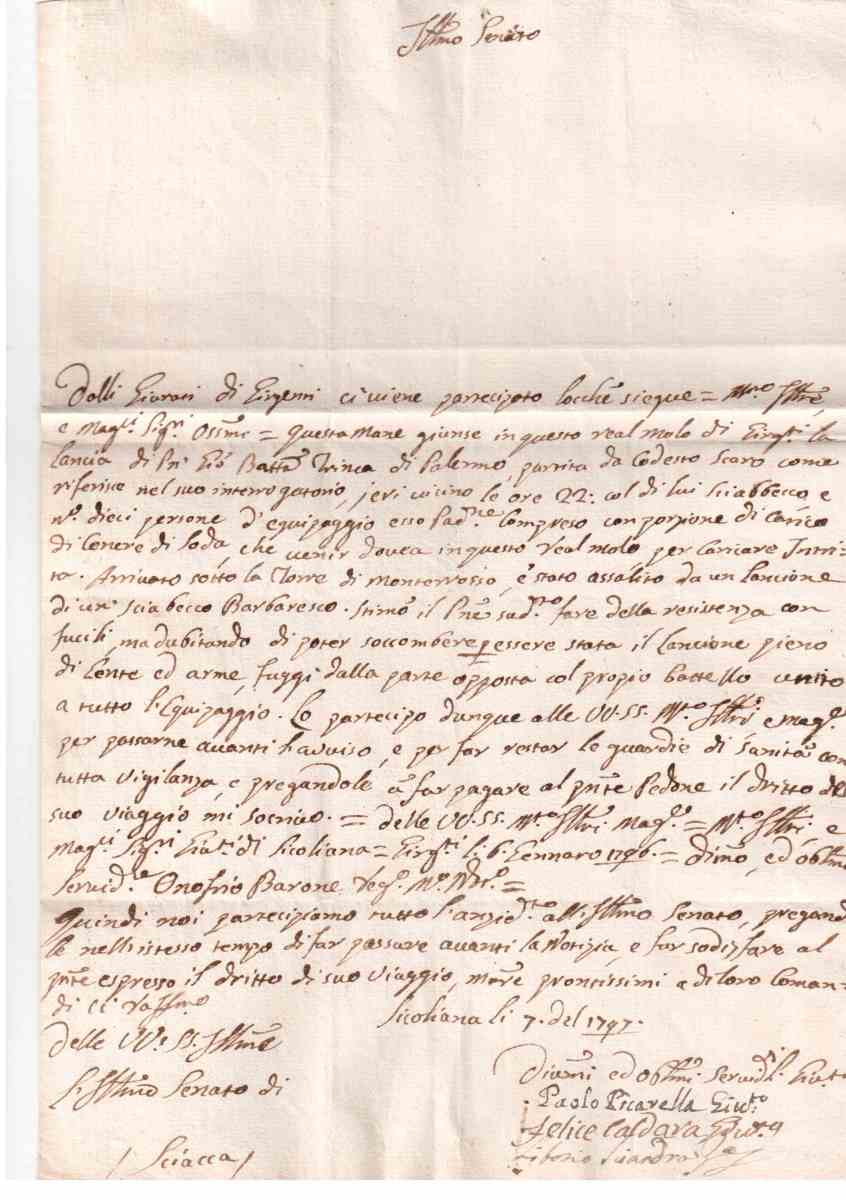 Ill͞mo Senato
Dalli Giurati di Girgenti ci viene partecipato locchè siegue = M.to Ill͞ri,
e Mag.ci Sig.ri Oss͞mi = Questa Mane giunse in questo real Molo di Girg.ti la
Lancia di P͞n Giõ Batt͞a Trinca di Palermo, partita da Codesto Scaro come
riferisce nel suo interrogatorio, jeri vicino le ore 22: col di lui Sciabbecco, e
n.o dieci persone d'equipaggio esso Pad.ne Compreso con porzione di Carico
di Cenere di Soda, che venir dovea in questo real molo per Caricare Intri-
ta. Arrivato sotto la Torre di Monterosso, è stato assalito da un Lancione
di un Sciabecco Barbaresco. Stimò il P͞ne sud.to fare della resistenza con
fucili, ma dubitando di poter soccombere p essere stata il Lancione pieno
di Gente ed arme, fuggì dalla parte opposta col propio battello unito
a tutto l'Equipaggio. Lo partecipo dunque alle VV.SS. M.to Ill͞ri e Mag.ci
per passarne avanti l'avviso, e per far restar le guardie di Sanità con
tutta vigilanza, e pregandole à far pagare al p͞nte Pedone il dritto del
suo viaggio mi soscrivo. = delle VV.SS. M.to Ill͞ri Mag.ci = M.to Ill͞ri, e
Mag.ci Sig.ri Giu.ti di Sicoliana = Girg.ti li 6. Gennaro 1796. = Di͞mo, ed obb͞mo
Servid.e Onofrio Barone
Quindi noi partecipiamo tutto l'anzid.to all'Ill͞mo Senato, pregand
le nell'istesso tempo di far passare avanti la Notizia, e far sodisfare al
p͞nte espresso il dritto di suo viaggio, m͞re prontissimi a di loro Coman-
di ci raff.mo
Sicoliana li 7. del 1797.
Delle VV. SS. Ill͞me
L'Ill͞mo Senato di
/ Sciacca /
Di͞mi ed obb͞mi Servid.ri li Giu.ti
Paolo Picarella Giu.to
Felice Caldara Giu.to
Liborio Sciandra